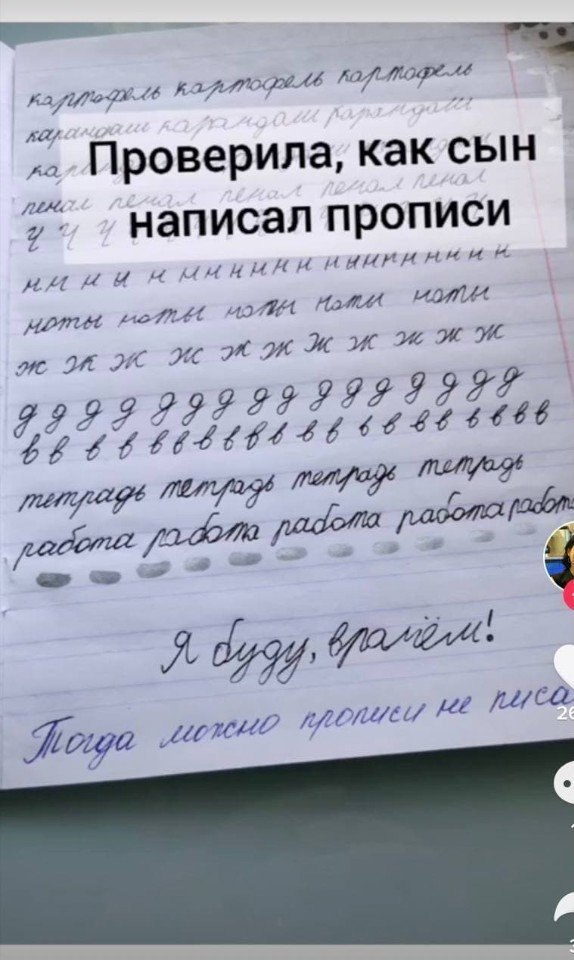 картофель картофель картофель
карандаш карандаш карандаш
Проверила, как сын
написал прописи
пенал пенал пенал пенал пенал
н н н н н н н н н н н н н н н н н н
ноты ноты ноты ноты ноты
ж ж ж ж ж ж ж ж ж ж ж
д д д д д д д д д д д д д д д д
в в в в в в в в в в в в в в в в в в в в
тетрадь тетрадь тетрадь тетрадь
работа работа работа работа работа
Я буду, врачём!
Тогда можно прописи не писа
26